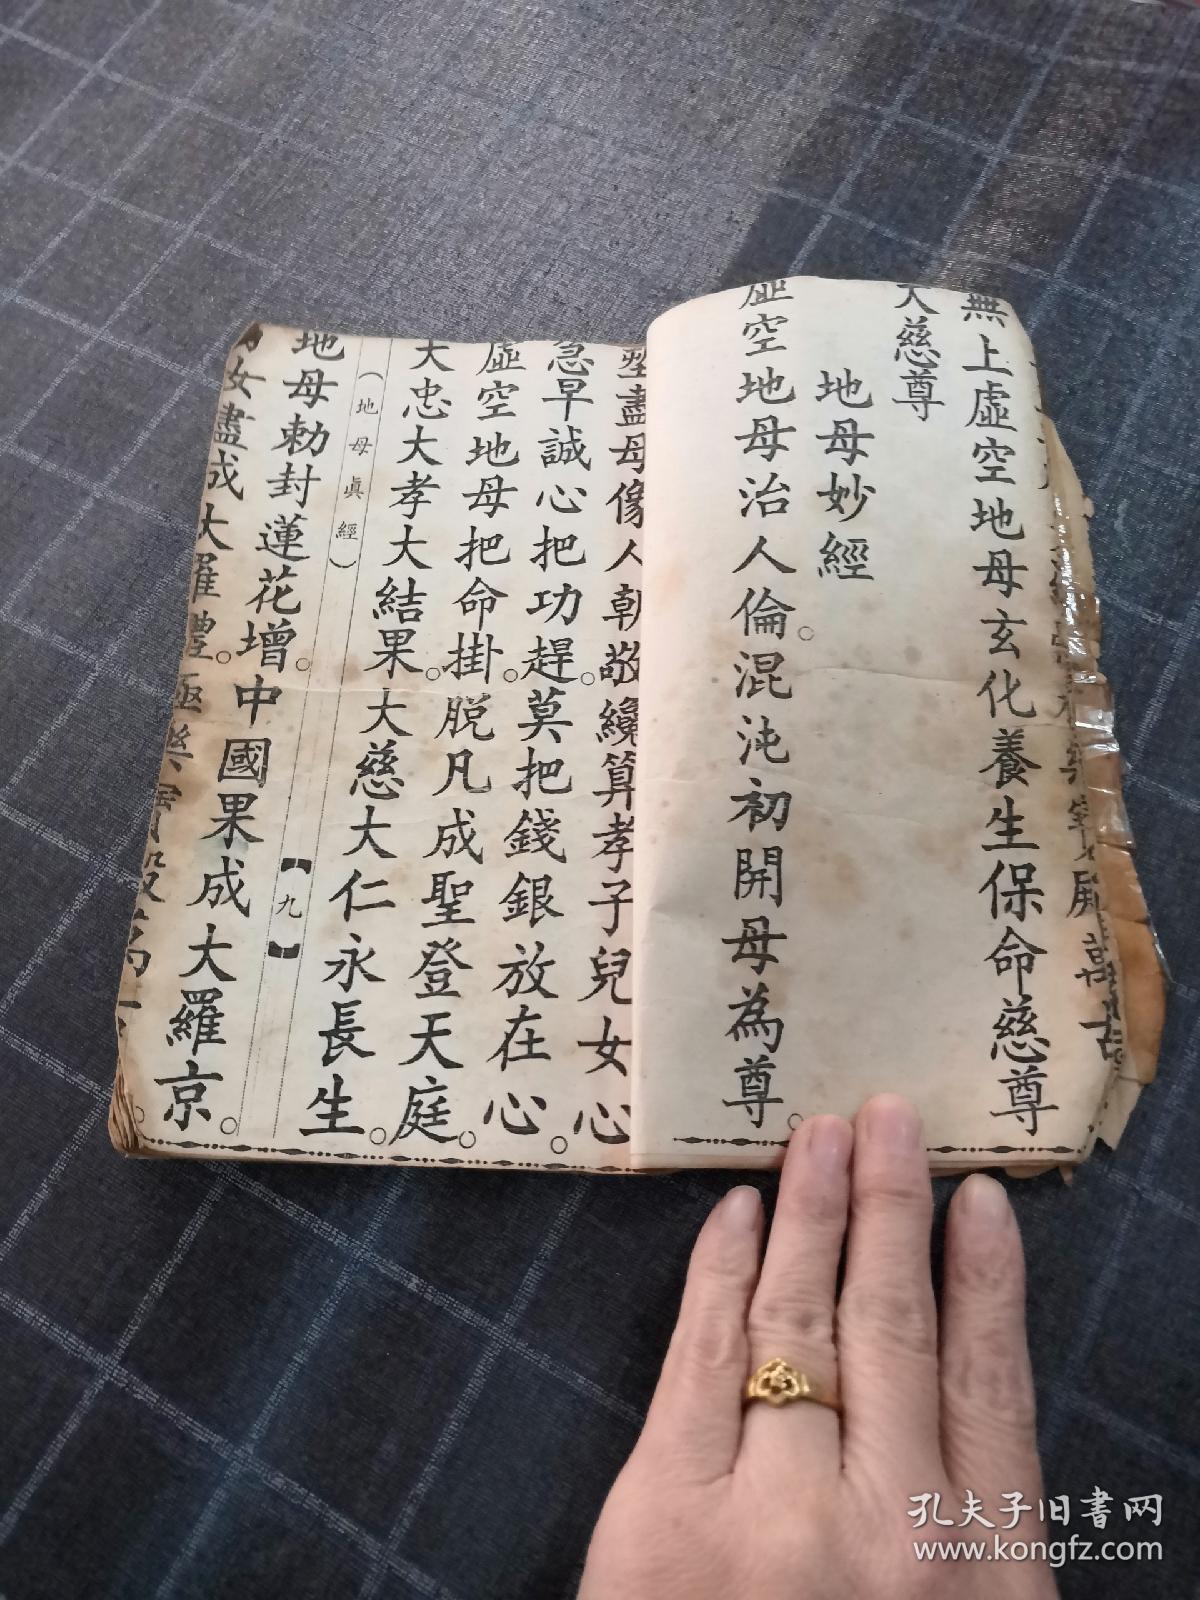 無上虛空地母玄化養生保命慈尊
大慈尊
地母妙經
虛空地母治人倫。混沌初開母為尊。
塑盡母像人朝敬纔算孝子兒女心
急早誠心把功趕。莫把錢銀放在心。
虛空地母把命掛。脫凡成聖登天庭。
大忠大孝大結果。大慈大仁永長生。
（地母眞經） 【九】
地母勅封蓮花增。中國果成大羅京。
女盡成大羅體。極樂
孔夫子旧書网
www.kongfz.com